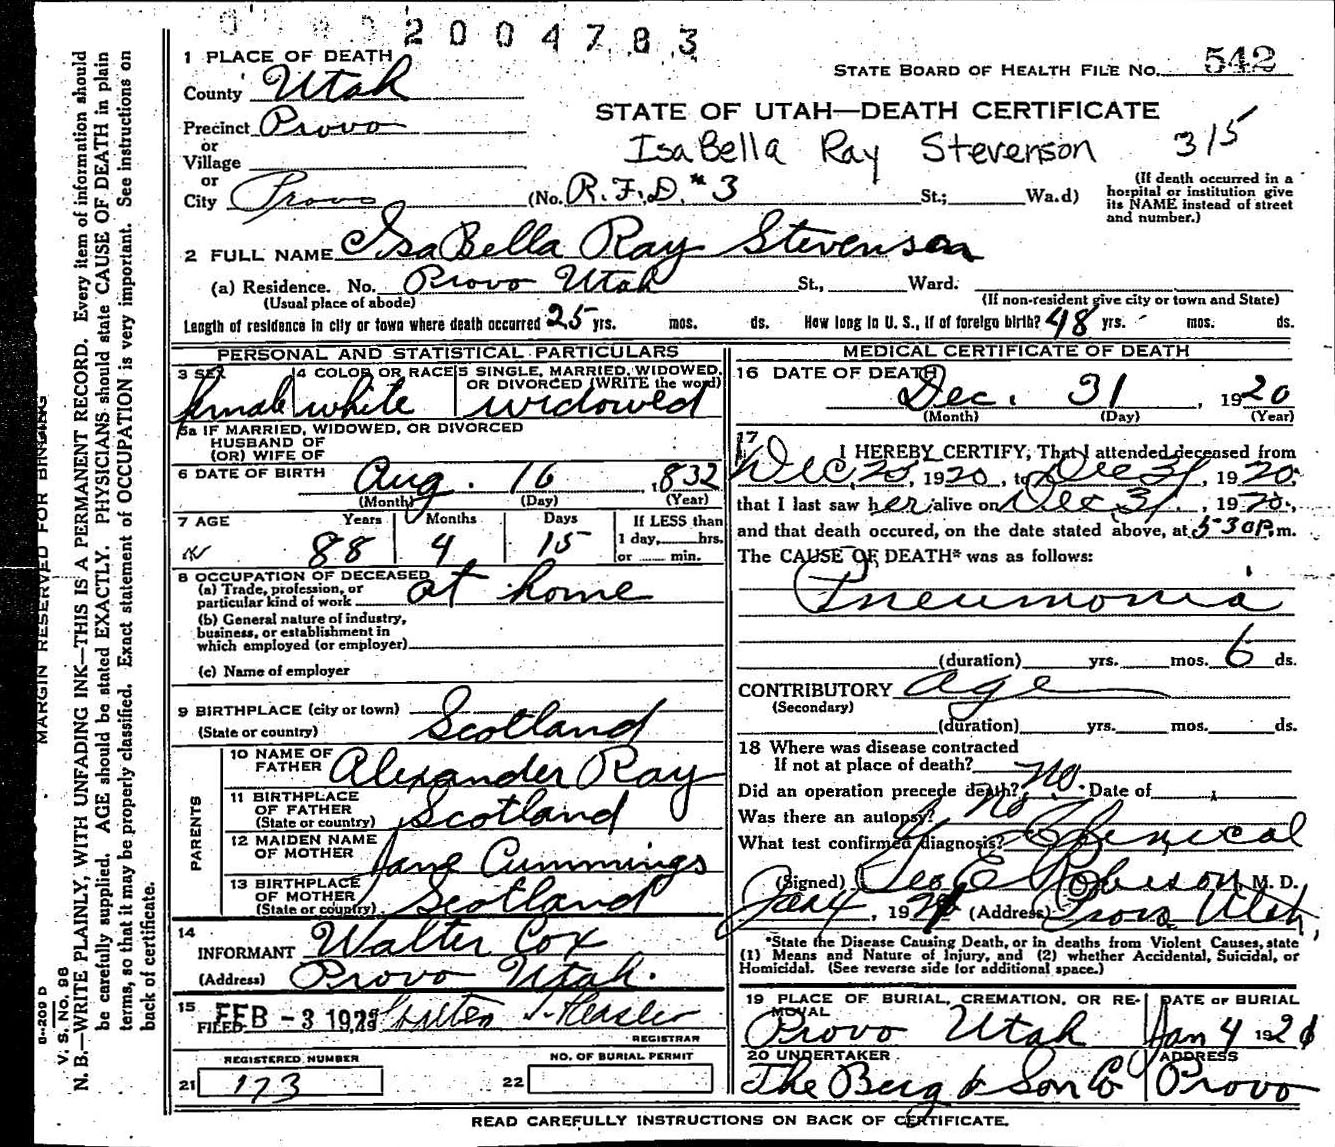 2004783
1 PLACE OF DEATH
STATE BOARD OF HEALTH FILE NO. 542
County Utah
STATE OF UTAH—DEATH CERTIFICATE
Precinct Provo
or
IsaBella Ray Stevenson 315
Village
or
City Provo (No. R.F.D. #3 St.; Wa.d)
(If death occurred in a hospital or institution give its NAME instead of street and number.)
2 FULL NAME IsaBella Ray Stevenson
(a) Residence. No. Provo Utah St., Ward.
(Usual place of abode) (If non-resident give city or town and State)
Length of residence in city or town where death occurred 25 yrs. mos. ds. How long in U. S., if of foreign birth? 48 yrs. mos. ds.
PERSONAL AND STATISTICAL PARTICULARS
3 SEX female
4 COLOR OR RACE white
5 SINGLE, MARRIED, WIDOWED, OR DIVORCED (WRITE the word) widowed
5a IF MARRIED, WIDOWED, OR DIVORCED
HUSBAND OF
(OR) WIFE OF
6 DATE OF BIRTH Aug. 16 1832
(Month) (Day) (Year)
7 AGE Years Months Days If LESS than
88 4 15 1 day, hrs.
or min.
8 OCCUPATION OF DECEASED
(a) Trade, profession, or
particular kind of work at home
(b) General nature of industry,
business, or establishment in
which employed (or employer)
(c) Name of employer
9 BIRTHPLACE (city or town)
(State or country) Scotland
PARENTS
10 NAME OF FATHER Alexander Ray
11 BIRTHPLACE OF FATHER (State or country) Scotland
12 MAIDEN NAME OF MOTHER Jane Cummings
13 BIRTHPLACE OF MOTHER (State or country) Scotland
14
INFORMANT Walter Cox
(Address) Provo Utah.
15
FILED FEB -3 192
REGISTRAR
REGISTERED NUMBER NO. OF BURIAL PERMIT
21 173 22
MEDICAL CERTIFICATE OF DEATH
16 DATE OF DEATH Dec. 31, 1920
(Month) (Day) (Year)
17
I HEREBY CERTIFY, That I attended deceased from
Dec, 25, 1920, to Dec 31, 1920,
that I last saw her alive on Dec 31, 1920,
and that death occured, on the date stated above, at 5:30 P. m.
The CAUSE OF DEATH* was as follows:
Pneumonia
(duration) yrs. mos. 6 ds.
CONTRIBUTORY age
(Secondary)
(duration) yrs. mos. ds.
18 Where was disease contracted
If not at place of death?
Did an operation precede death? No. Date of
Was there an autopsy? No
What test confirmed diagnosis? Clinical
(Signed) Geo E Robison M. D.
Jan 4, 1921 (Address) Provo Utah,
*State the Disease Causing Death, or in deaths from Violent Causes, state
(1) Means and Nature of Injury, and (2) whether Accidental, Suicidal, or
Homicidal. (See reverse side for additional space.)
19 PLACE OF BURIAL, CREMATION, OR REMOVAL DATE OF BURIAL
Provo Utah Jan 4 1921
20 UNDERTAKER ADDRESS
The Berg & Son Co Provo
READ CAREFULLY INSTRUCTIONS ON BACK OF CERTIFICATE.
MARGIN RESERVED FOR BINDING
N. B.—WRITE PLAINLY, WITH UNFADING INK—THIS IS A PERMANENT RECORD. Every item of information should
be carefully supplied. AGE should be stated EXACTLY. PHYSICIANS should state CAUSE OF DEATH in plain
terms, so that it may be properly classified. Exact statement of OCCUPATION is very important. See instructions on
back of certificate.
V. S. No. 98